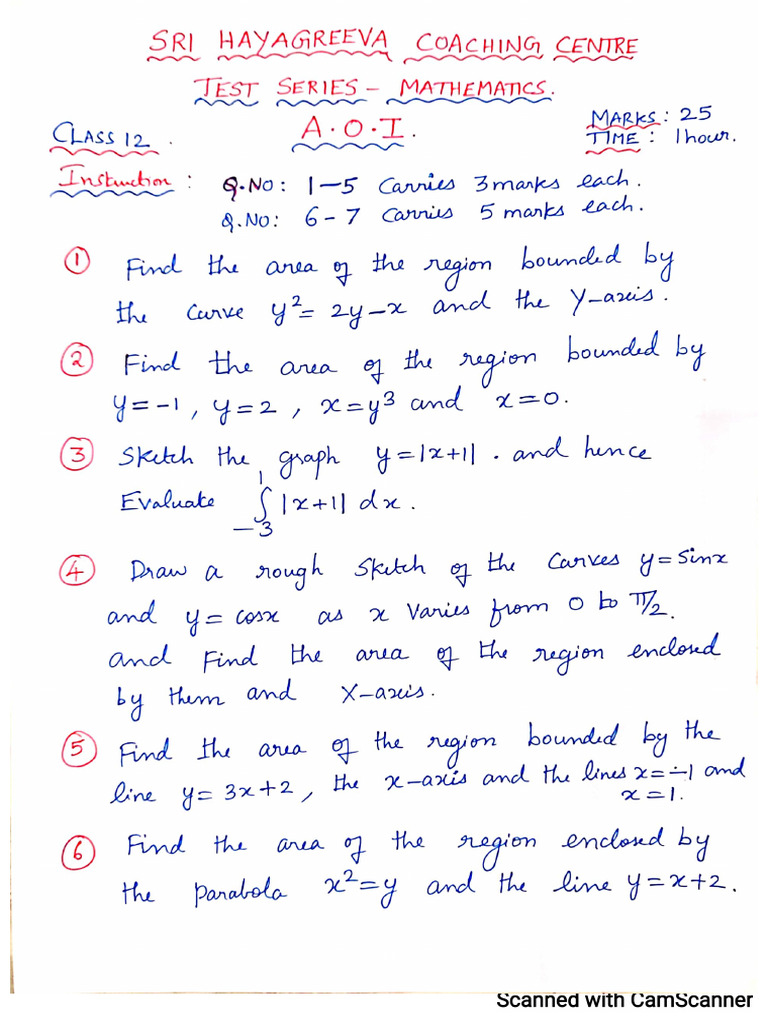 SRI HAYAGREEVA COACHING CENTRE
TEST SERIES - MATHEMATICS.
CLASS 12. A.O.I. MARKS: 25
TIME: 1hour.
Instruction: Q.NO: 1-5 Carries 3 marks each.
Q.NO: 6-7 Carries 5 marks each.
① Find the area of the region bounded by
the curve y²= 2y-x and the Y-axis.
② Find the area of the region bounded by
y=-1, y=2, x=y³ and x=0.
③ Sketch the graph y=|x+1|. and hence
Evaluate ∫₋₃¹ |x+1| dx.
④ Draw a rough sketch of the curves y=sinx
and y=cosx as x varies from 0 to π/2.
and Find the area of the region enclosed
by them and X-axis.
⑤ Find the area of the region bounded by the
line y=3x+2, the x-axis and the lines x=-1 and
x=1.
⑥ Find the area of the region enclosed by
the parabola x²=y and the line y=x+2.
Scanned with CamScanner